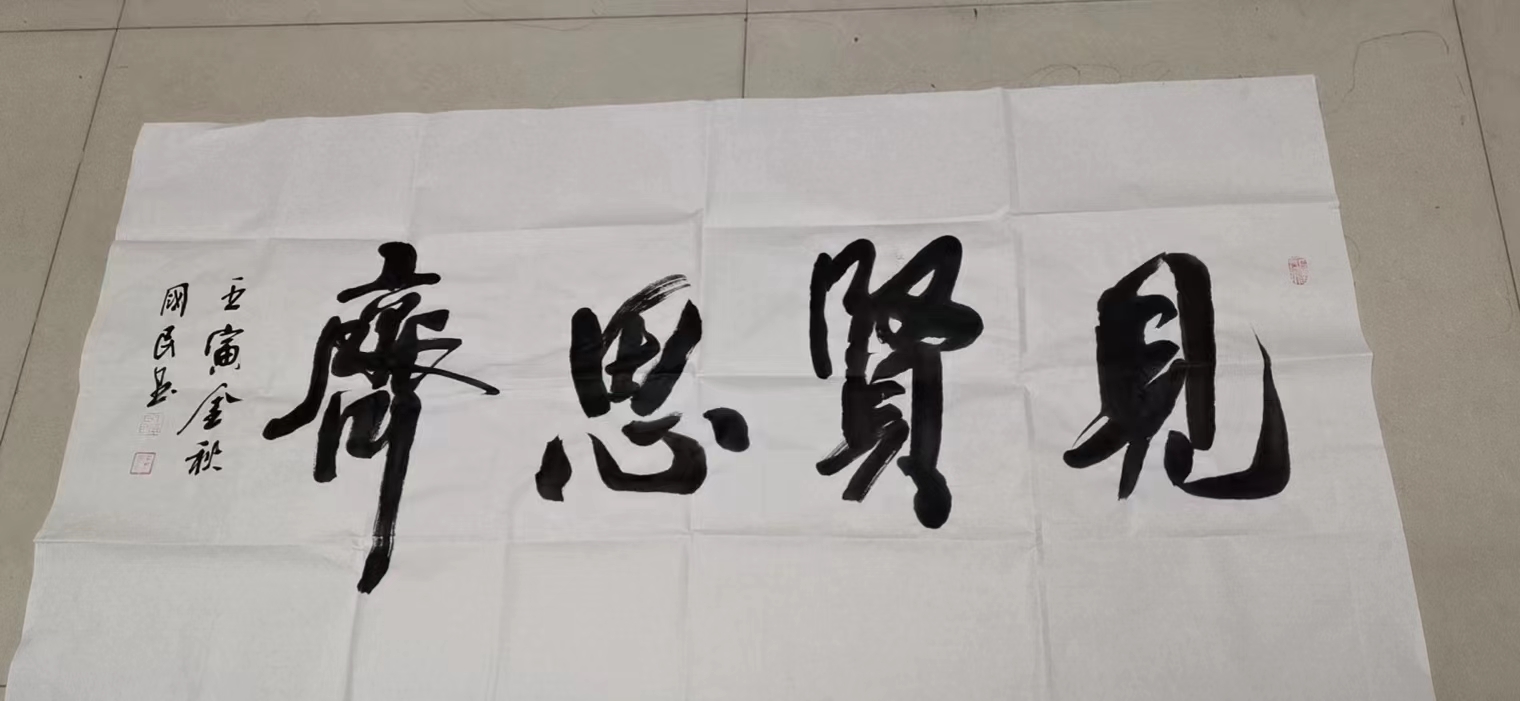 見賢思齊
壬寅金秋
國民書